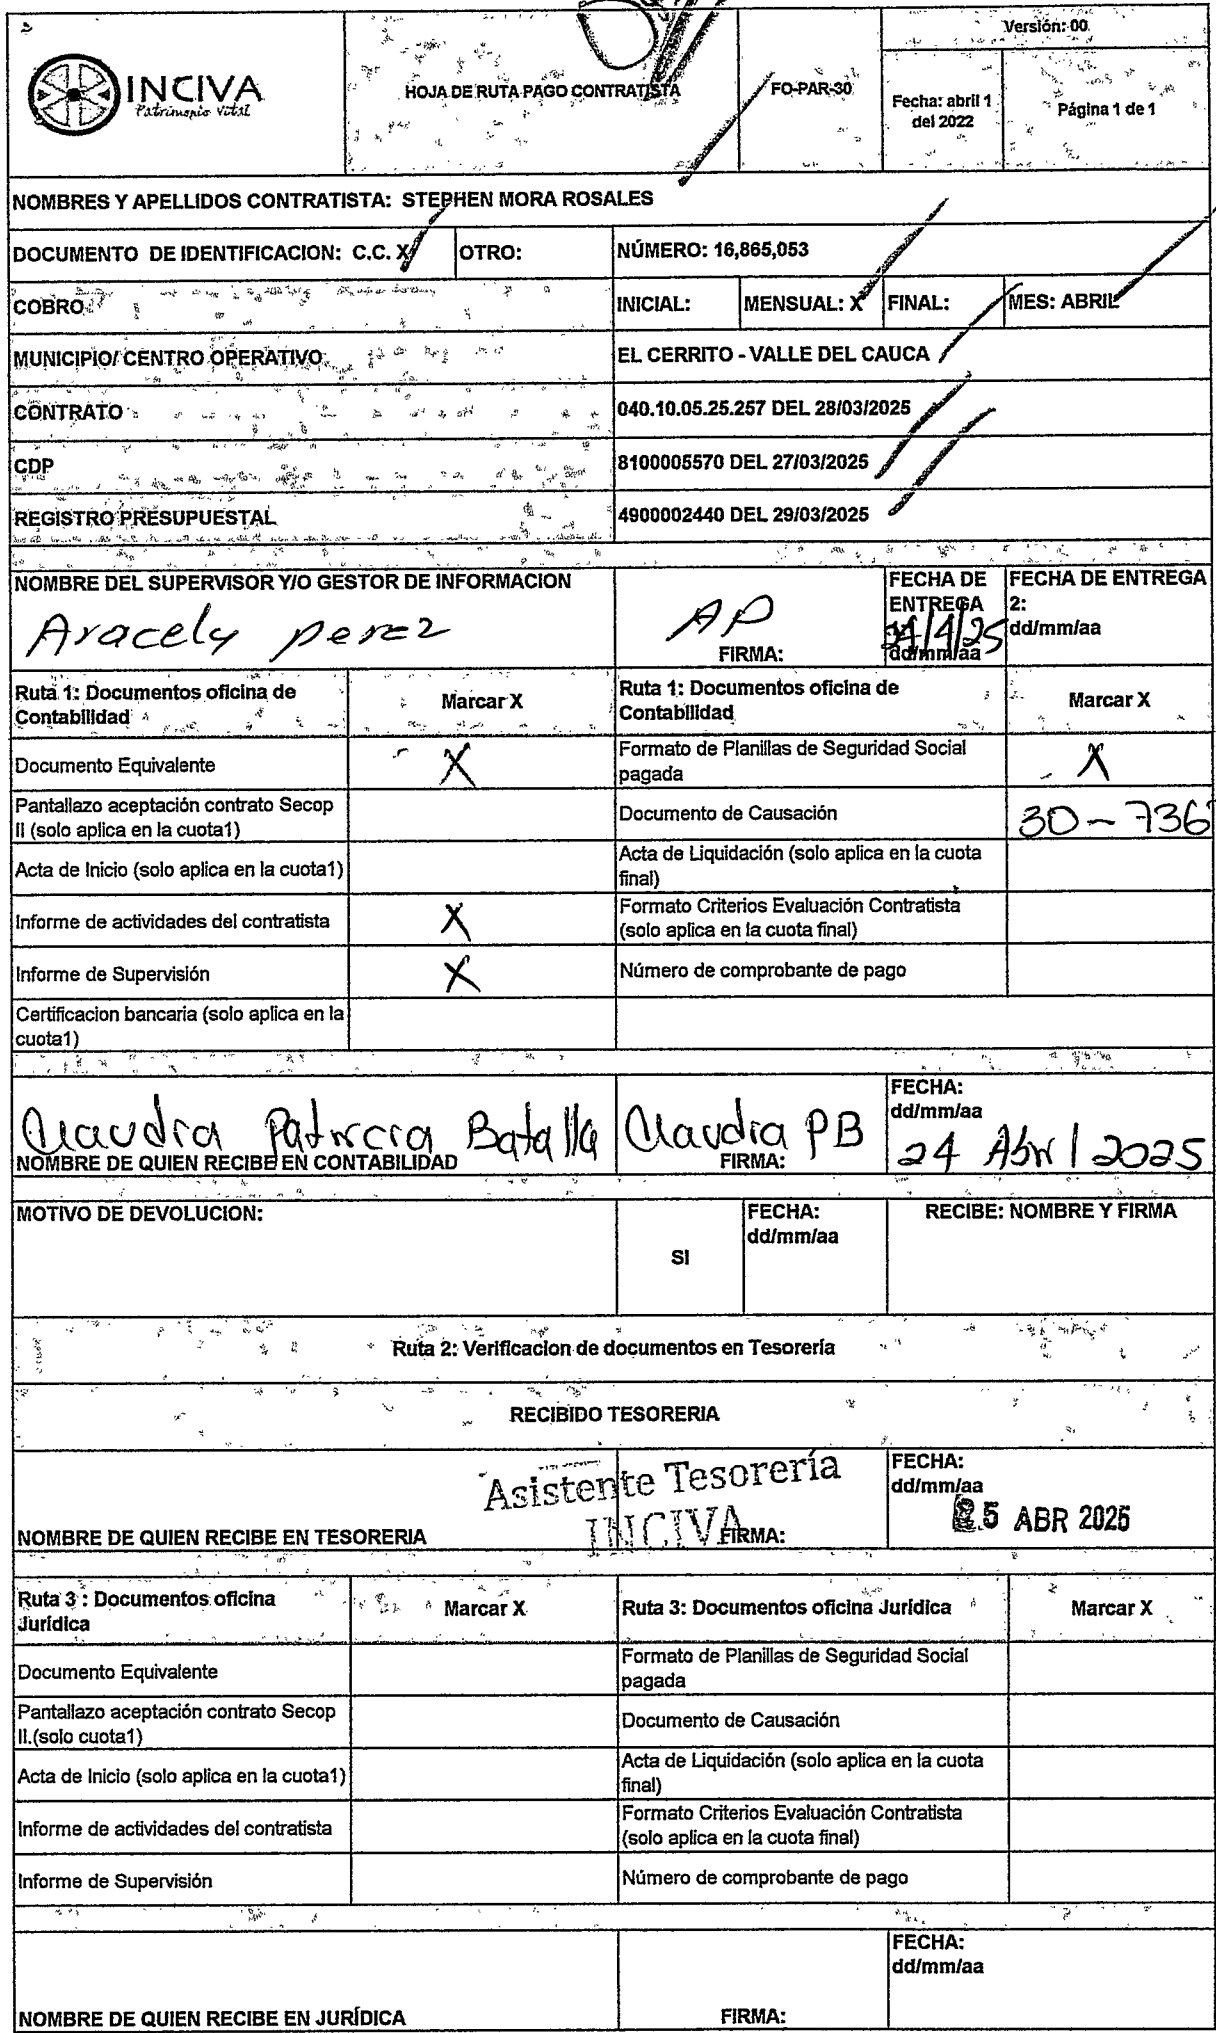 INCIVA
Patrimonio Vital
HOJA DE RUTA PAGO CONTRATISTA
FO-PAR-30
Versión: 00
Fecha: abril 1
del 2022
Página 1 de 1
NOMBRES Y APELLIDOS CONTRATISTA: STEPHEN MORA ROSALES
DOCUMENTO DE IDENTIFICACION: C.C. X
OTRO:
NÚMERO: 16,865,053
COBRO
INICIAL:
MENSUAL: X
FINAL:
MES: ABRIL
MUNICIPIO/ CENTRO OPERATIVO
EL CERRITO - VALLE DEL CAUCA
CONTRATO
040.10.05.25.257 DEL 28/03/2025
CDP
8100005570 DEL 27/03/2025
REGISTRO PRESUPUESTAL
4900002440 DEL 29/03/2025
NOMBRE DEL SUPERVISOR Y/O GESTOR DE INFORMACION
Aracely perez
AP
FIRMA:
FECHA DE
ENTREGA
/4/25
dd/mm/aa
FECHA DE ENTREGA
2:
dd/mm/aa
Ruta 1: Documentos oficina de
Contabilidad
Marcar X
Ruta 1: Documentos oficina de
Contabilidad
Marcar X
Documento Equivalente
X
Formato de Planillas de Seguridad Social
pagada
X
Pantallazo aceptación contrato Secop
II (solo aplica en la cuota1)
Documento de Causación
30-736
Acta de Inicio (solo aplica en la cuota1)
Acta de Liquidación (solo aplica en la cuota
final)
Informe de actividades del contratista
X
Formato Criterios Evaluación Contratista
(solo aplica en la cuota final)
Informe de Supervisión
X
Número de comprobante de pago
Certificacion bancaria (solo aplica en la
cuota1)
Claudia Patricia Batalla
NOMBRE DE QUIEN RECIBE EN CONTABILIDAD
Claudia PB
FIRMA:
FECHA:
dd/mm/aa
24 Abril 2025
MOTIVO DE DEVOLUCION:
SI
FECHA:
dd/mm/aa
RECIBE: NOMBRE Y FIRMA
Ruta 2: Verificacion de documentos en Tesorería
RECIBIDO TESORERIA
Asistente Tesorería
INCIVA
NOMBRE DE QUIEN RECIBE EN TESORERIA
FIRMA:
FECHA:
dd/mm/aa
25 ABR 2025
Ruta 3 : Documentos oficina
Jurídica
Marcar X
Ruta 3: Documentos oficina Jurídica
Marcar X
Documento Equivalente
Formato de Planillas de Seguridad Social
pagada
Pantallazo aceptación contrato Secop
II.(solo cuota1)
Documento de Causación
Acta de Inicio (solo aplica en la cuota1)
Acta de Liquidación (solo aplica en la cuota
final)
Informe de actividades del contratista
Formato Criterios Evaluación Contratista
(solo aplica en la cuota final)
Informe de Supervisión
Número de comprobante de pago
NOMBRE DE QUIEN RECIBE EN JURÍDICA
FIRMA:
FECHA:
dd/mm/aa